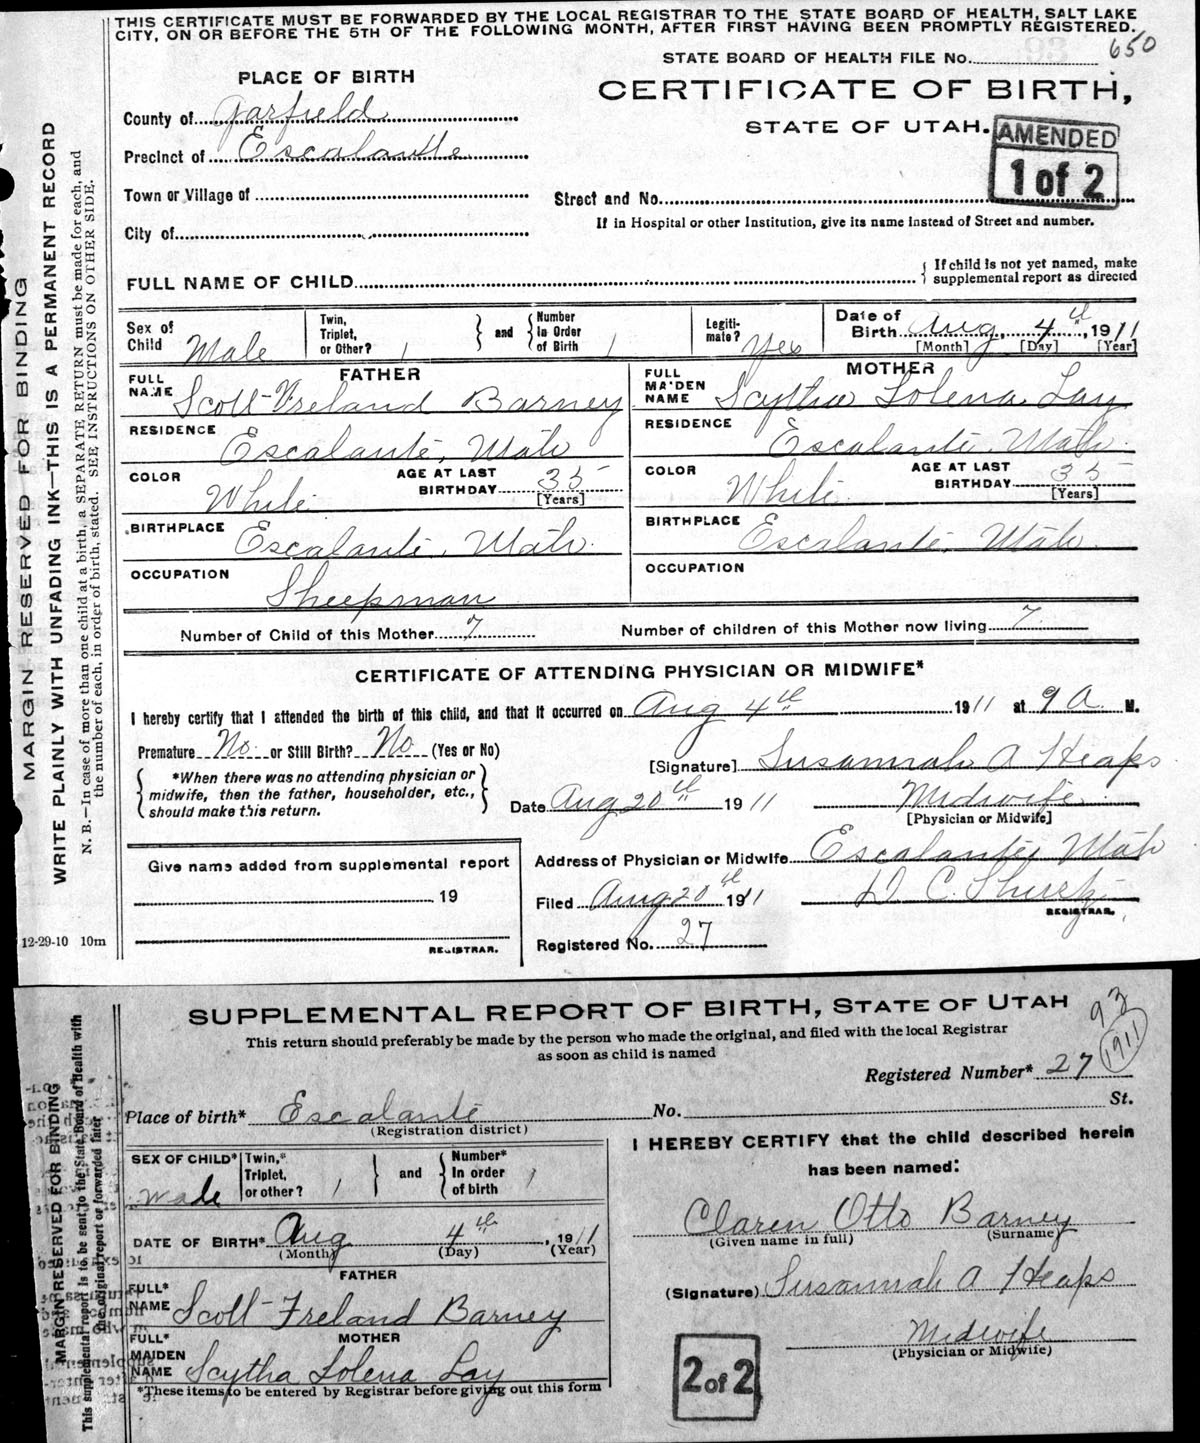 THIS CERTIFICATE MUST BE FORWARDED BY THE LOCAL REGISTRAR TO THE STATE BOARD OF HEALTH, SALT LAKE
CITY, ON OR BEFORE THE 5TH OF THE FOLLOWING MONTH, AFTER FIRST HAVING BEEN PROMPTLY REGISTERED.
650
STATE BOARD OF HEALTH FILE No.
PLACE OF BIRTH
CERTIFICATE OF BIRTH,
STATE OF UTAH.
AMENDED
1 of 2
County of Garfield
Precinct of Escalante
Town or Village of
Street and No.
If in Hospital or other Institution, give its name instead of Street and number.
City of
FULL NAME OF CHILD
If child is not yet named, make
supplemental report as directed
Sex of Child Male
Twin, Triplet, or Other? 1 and Number In Order of Birth 1
Legiti-mate? Yes
Date of Birth Aug, 4th, 1911
[Month] [Day] [Year]
FATHER
FULL NAME Scott Freland Barney
MOTHER
FULL MAIDEN NAME Scytha Lolena Lay
RESIDENCE Escalante, Utah
RESIDENCE Escalante, Utah.
COLOR White
AGE AT LAST BIRTHDAY 35 [Years]
COLOR White
AGE AT LAST BIRTHDAY 35 [Years]
BIRTHPLACE Escalante, Utah.
BIRTHPLACE Escalante, Utah.
OCCUPATION Sheepman
OCCUPATION
Number of Child of this Mother 7
Number of children of this Mother now living 7
CERTIFICATE OF ATTENDING PHYSICIAN OR MIDWIFE*
I hereby certify that I attended the birth of this child, and that it occurred on Aug 4th 1911 at 9 A. M.
Premature No. or Still Birth? No. (Yes or No)
*When there was no attending physician or
midwife, then the father, householder, etc.,
should make this return.
[Signature] Susannah A Heaps
Date Aug 20th 1911
Midwife
[Physician or Midwife]
Give name added from supplemental report
19
REGISTRAR.
Address of Physician or Midwife Escalante, Utah
Filed Aug 20th 1911
REGISTRAR.
Registered No. 27
12-29-10 10m
MARGIN RESERVED FOR BINDING
WRITE PLAINLY WITH UNFADING INK—THIS IS A PERMANENT RECORD
N. B.—In case of more than one child at a birth, a SEPARATE RETURN must be made for each, and
the number of each, in order of birth, stated. SEE INSTRUCTIONS ON OTHER SIDE.
SUPPLEMENTAL REPORT OF BIRTH, STATE OF UTAH
93
1911
This return should preferably be made by the person who made the original, and filed with the local Registrar
as soon as child is named
Registered Number* 27
Place of birth* Escalante No. St.
(Registration district)
SEX OF CHILD* Male
Twin,* Triplet, or other? 1 and Number* In order of birth 1
DATE OF BIRTH* Aug 4th, 1911
(Month) (Day) (Year)
FATHER
FULL* NAME Scott Freland Barney
MOTHER
FULL* MAIDEN NAME Scytha Lolena Lay
*These items to be entered by Registrar before giving out this form
I HEREBY CERTIFY that the child described herein
has been named:
Claren Otto Barney
(Given name in full) (Surname)
(Signature) Susannah A Heaps
Midwife
(Physician or Midwife)
2 of 2
MARGIN RESERVED FOR BINDING
This supplemental report is to be sent to the State Board of Health with
the original report or forwarded later